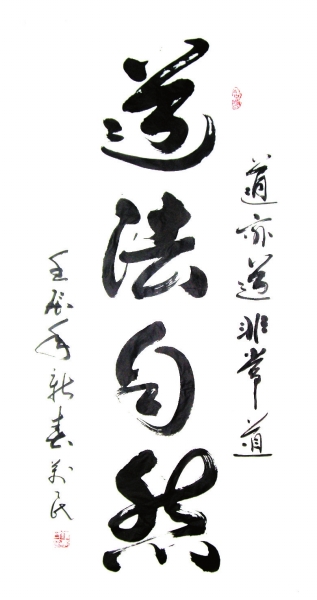 道亦道非常道
道法自然
壬辰年新春